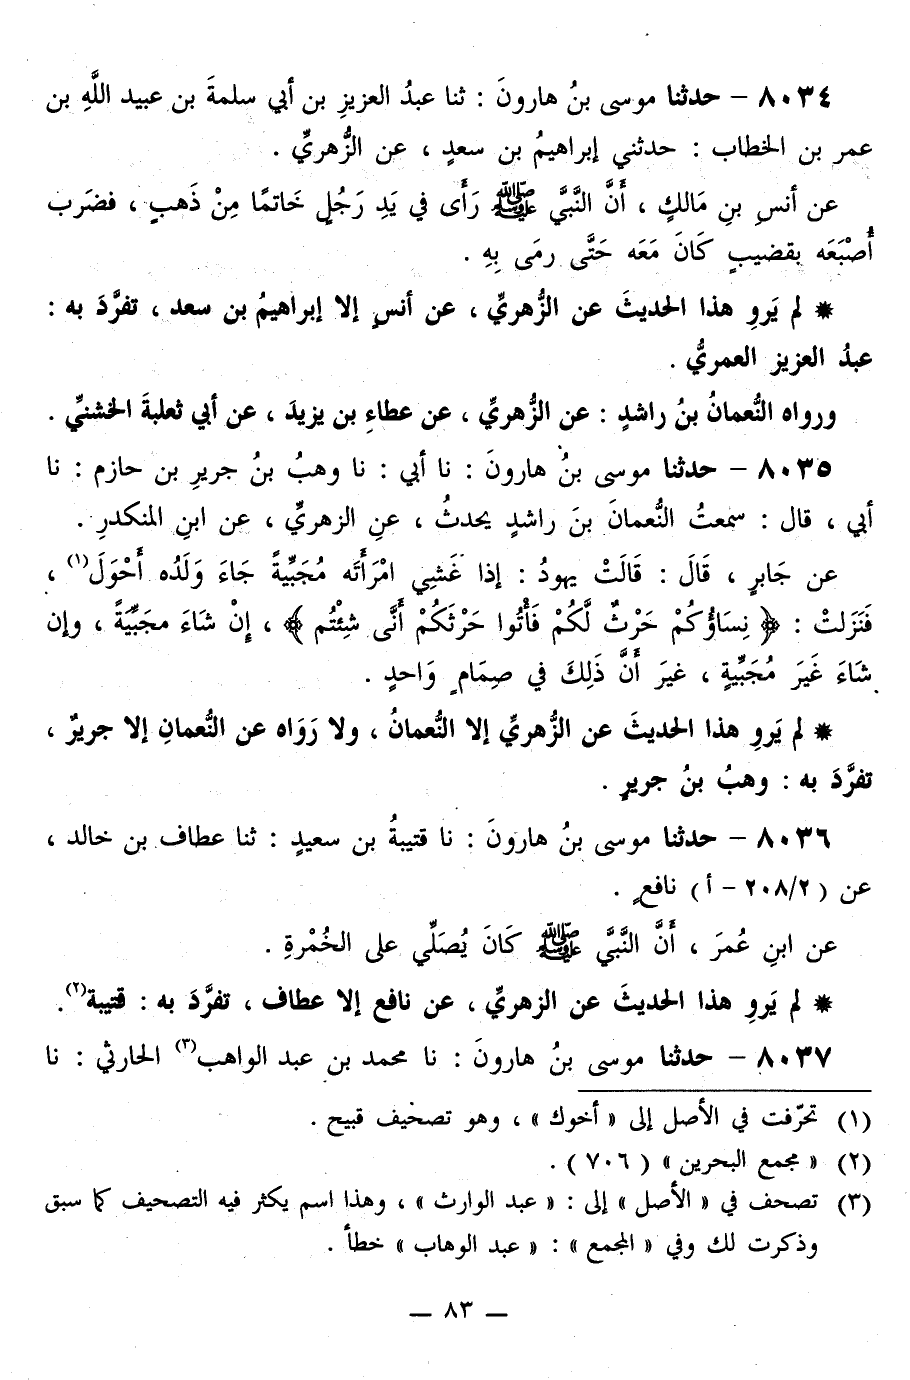 ٨٠٣٤ – حدثنا موسى بنُ هارونَ : ثنا عبدُ العزيزِ بن أبي سلمةَ بن عبيد اللَّهِ بن
عمر بن الخطاب : حدثني إبراهيمُ بن سعدٍ ، عن الزُّهريِّ .
عن أنسِ بنِ مَالكٍ ، أَنَّ النَّبيَّ ﷺ رَأَى في يَدِ رَجُلٍ خَاتمًا مِنْ ذَهبٍ ، فضَرب
أُصْبَعَه بقضيبٍ كَانَ مَعَه حَتَّى رمَى بِهِ .
* لم يَروِ هذا الحديثَ عن الزُّهريِّ ، عن أنسٍ إلا إبراهيمُ بن سعد ، تفرَّدَ به :
عبدُ العزيز العمريُّ .
ورواه النُّعمانُ بنُ راشدٍ : عن الزُّهريِّ ، عن عطاءِ بن يزيدَ ، عن أبي ثعلبةَ الخشنيِّ .
٨٠٣٥ – حدثنا موسى بنُ هارونَ : نا أبي : نا وهبُ بنُ جريرِ بن حازم : نا
أبي ، قال : سمعتُ النُّعمانَ بنَ راشدٍ يحدثُ ، عنِ الزهريِّ ، عن ابنِ المنكدرِ .
عن جَابرٍ ، قَالَ : قَالَتْ يهودُ : إذا غَشِي امْرَأَته مُجَبِّيةً جَاءَ وَلَدُه أَحْوَلَ(١) ،
فَنَزَلتْ : ﴿ نِساؤُكُمْ حَرْثٌ لَّكُمْ فَأْتُوا حَرْثَكُمْ أَنَّى شِئْتُم ﴾ ، إِنْ شَاءَ مجَبِّيَةً ، وإن
شَاءَ غَيَرَ مُجَبِّيةٍ ، غيرَ أَنَّ ذَلِكَ في صِمَامٍ وَاحدٍ .
* لم يَروِ هذا الحديثَ عن الزُّهريِّ إلا النُّعمانُ ، ولا رَوَاه عن النُّعمانِ إلا جريرٌ ،
تفرَّدَ به : وهبُ بنُ جريرٍ .
٨٠٣٦ – حدثنا موسى بنُ هارونَ : نا قتيبةُ بن سعيدٍ : ثنا عطاف بن خالد ،
عن ( ٢٠٨/٢ – أ ) نافعٍ .
عن ابنِ عُمرَ ، أَنَّ النَّبيَّ ﷺ كَانَ يُصَلِّي على الخُمْرةِ .
* لم يَروِ هذا الحديثَ عن الزهريِّ ، عن نافع إلا عطاف ، تفرَّدَ به : قتيبة(٢).
٨٠٣٧ – حدثنا موسى بنُ هارونَ : نا محمد بن عبد الواهب(٣) الحارثي : نا
(١) تحرّفت في الأصل إلى « أخوك » ، وهو تصحيف قبيح .
(٢) « مجمع البحرين » ( ٧٠٦ ) .
(٣) تصحف في « الأصل » إلى : « عبد الوارث » ، وهذا اسم يكثر فيه التصحيف كما سبق
وذكرت لك وفي « المجمع » : « عبد الوهاب » خطأ .
— ٨٣ —